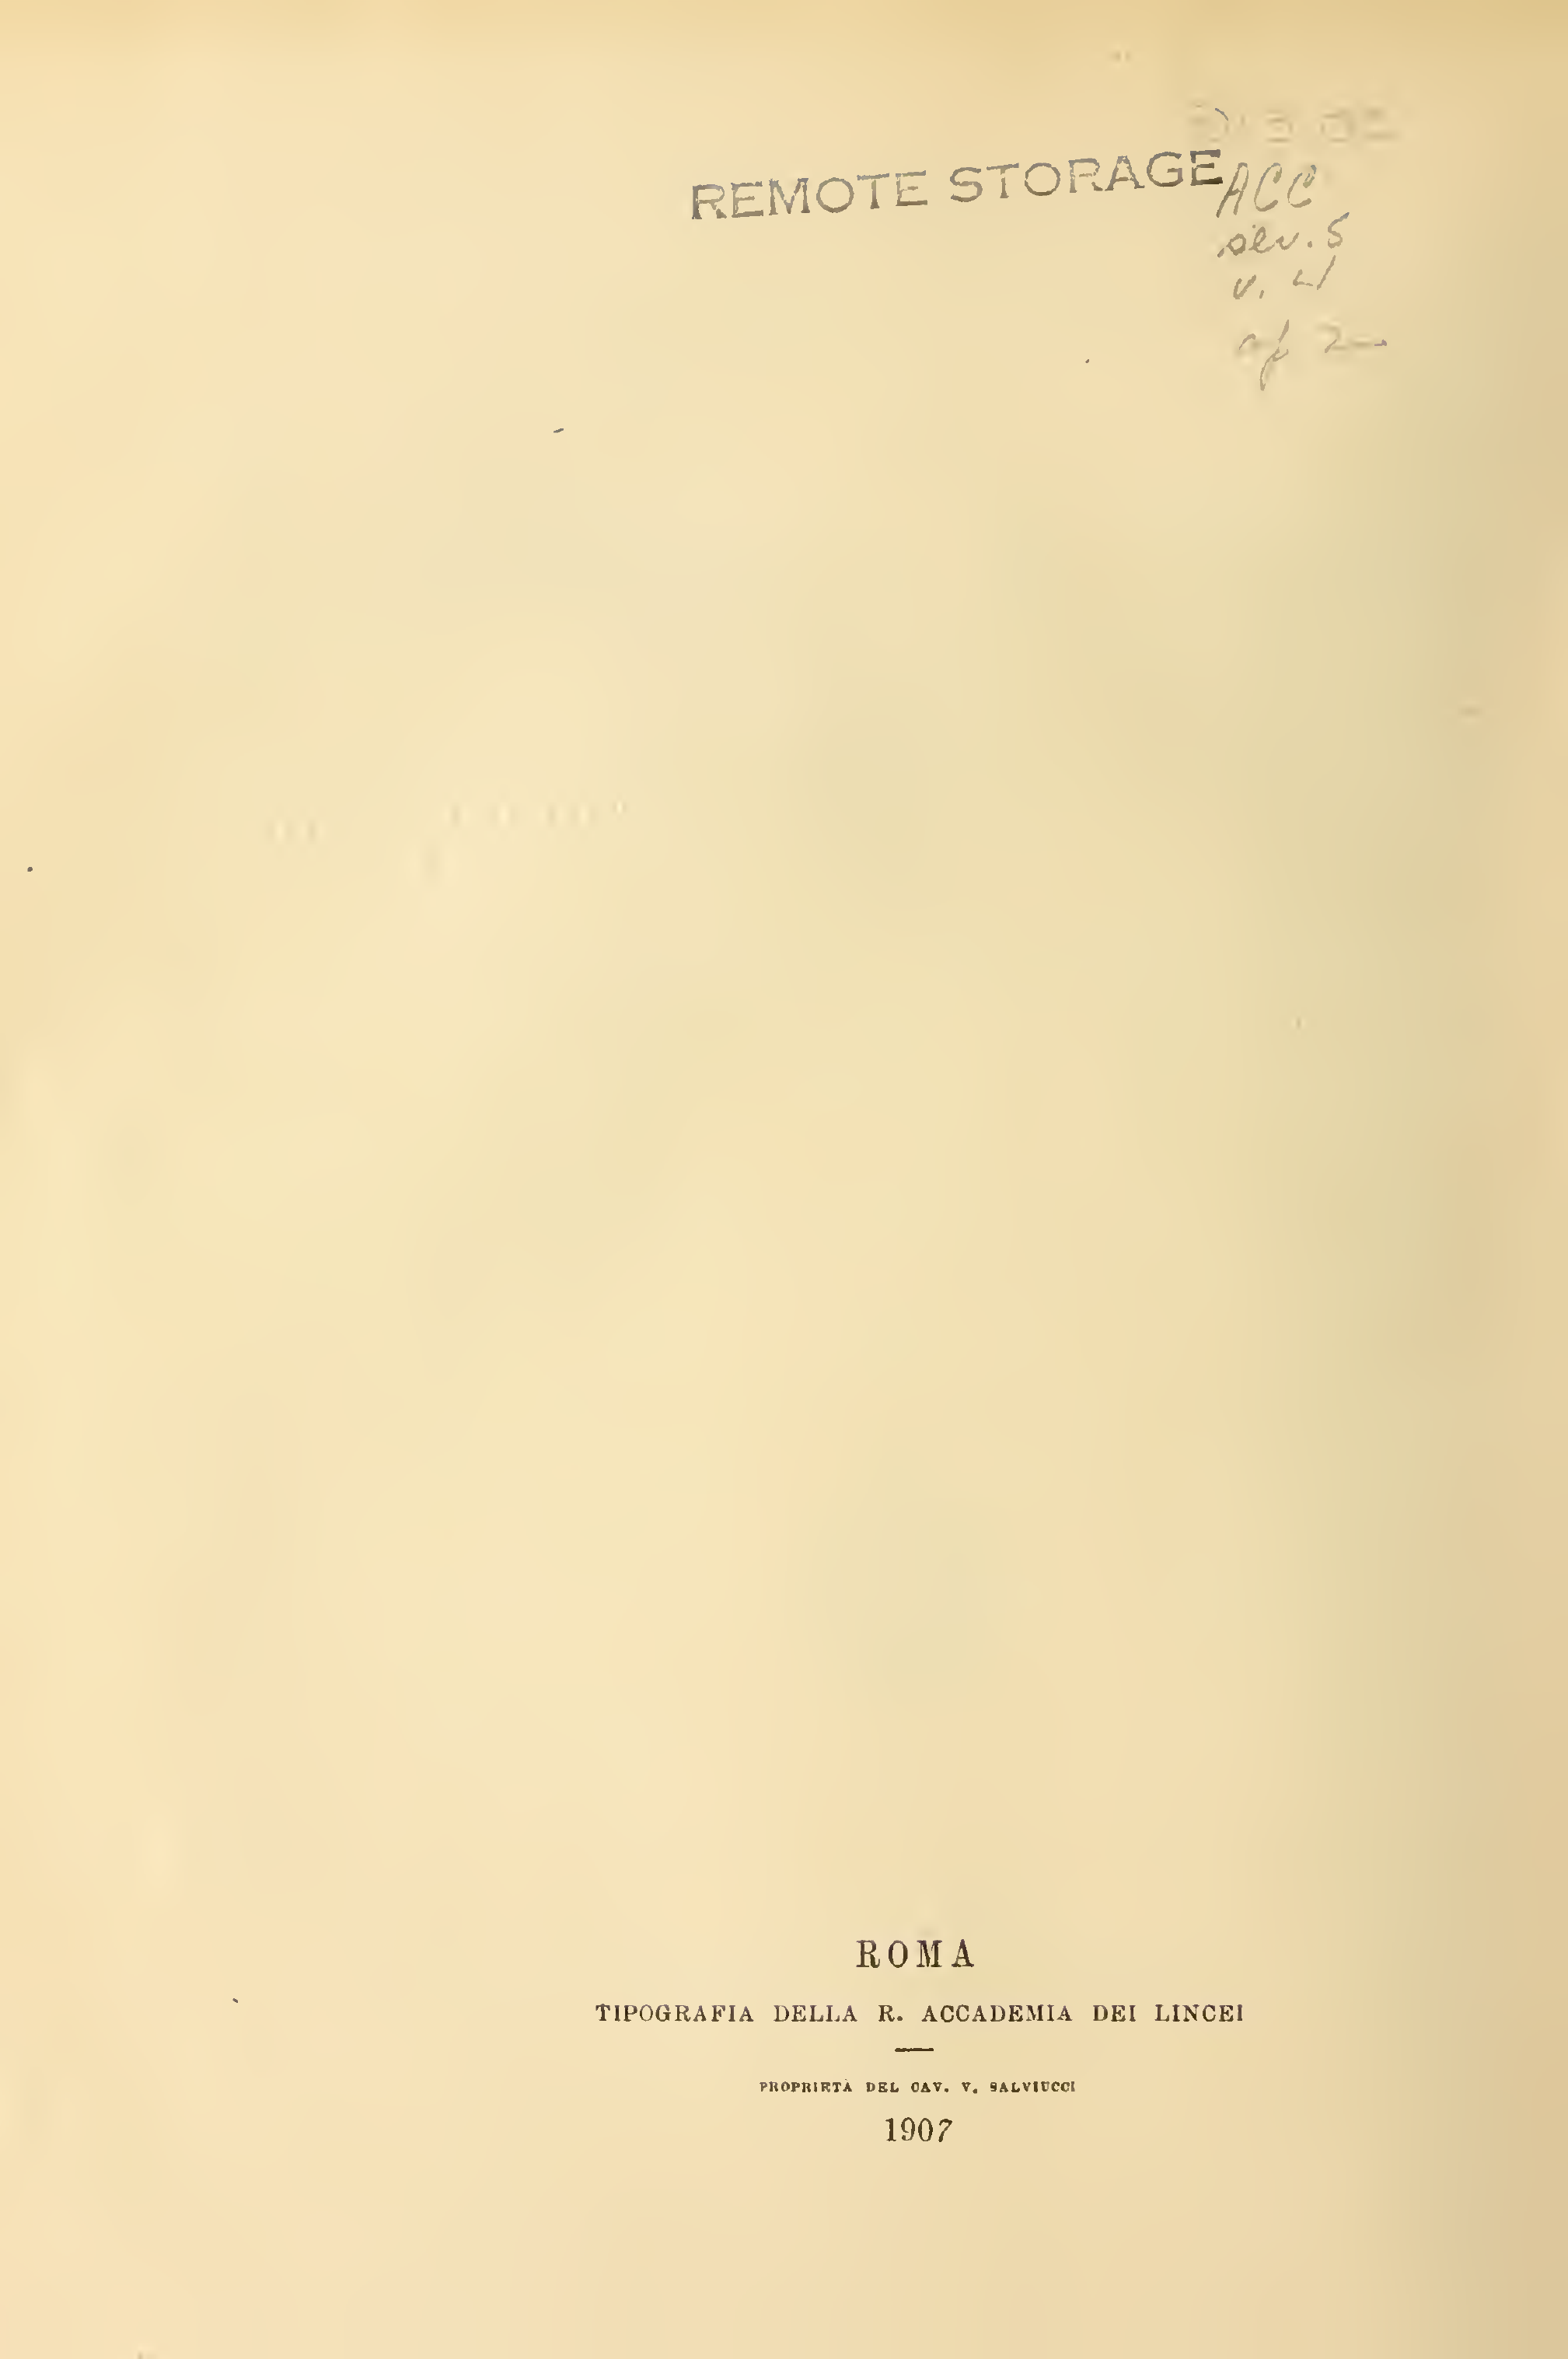 REMOTE STORAGE
ACC
ser. 5
v. 4
ROMA
TIPOGRAFIA DELLA R. ACCADEMIA DEI LINCEI
PROPRIETÀ DEL CAV. V. SALVIUCCI
1907